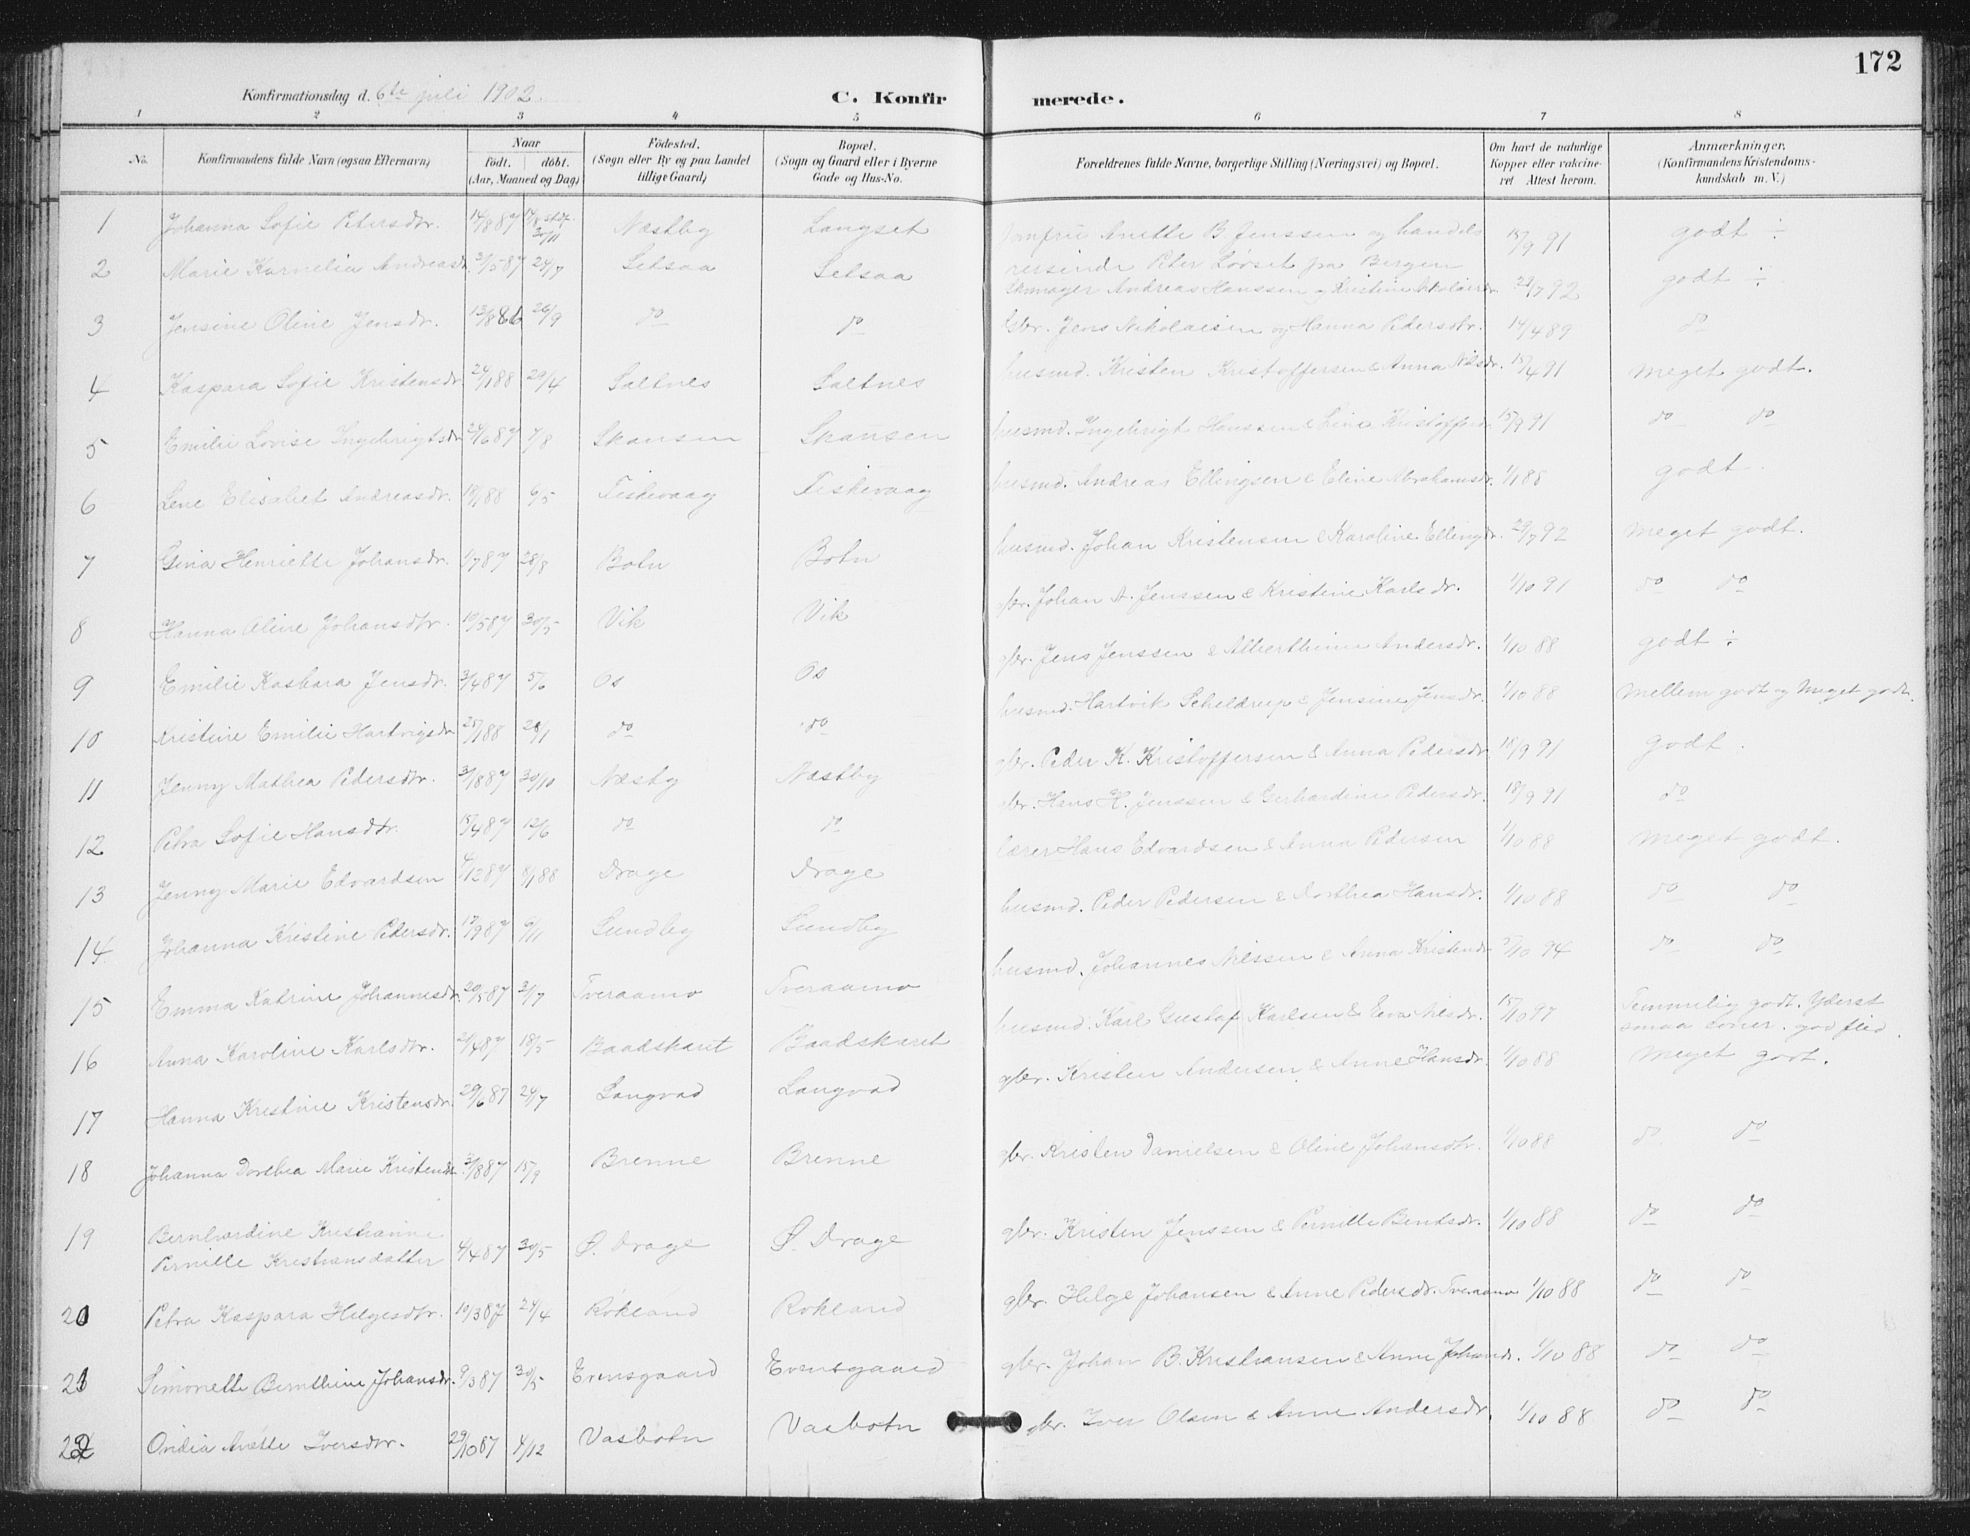 172
Konfirmationsdag d. 6te juli 1902. C. Konfirmerede.
1 2 3 4 5 6 7 8
No. Konfirmandens fulde Navn (ogsaa Efternavn) Naar født. døbt. (Aar, Maaned og Dag) Fødested. (Sogn eller By og paa Landet tillige Gaard) Bopæl. (Sogn og Gaard eller i Byerne Gade og Hus-No. Forældrenes fulde Navne, borgerlige Stilling (Næringsvei) og Bopæl. Om havt de naturlige Kopper eller vakcineret Attest herom. Anmærkninger. (Konfirmandens Kristendomskundskab m. V.)
1 Johanna Sofie Petersdtr. 14/8 87 Næstby Langset Anette B. Jenssen og handels 15/9 91 godt ÷
reisende Peter Lørset paa Bergen
2 Marie Kornelia Andreasdr. 31/5 87 24/7 Setsaa Setsaa Skomager Andreas Hanssen og Kristine 29/7 92 godt ÷
3 Jensine Oline Jensdr. 13/8 86 26/9 do do Gbr. Jens Nikolaisen og Hanna Pedersdtr. 14/4 89 do
4 Kaspara Sofie Kristensdr. 24/1 88 29/4 Saltnes Saltnes husmd. Kristen Kristoffersen & Anna Nilsdr. 15/4 91 Meget godt.
5 Emilie Lovise Ingebrigtsdr. 24/6 87 7/8 Skansen Skansen husmd. Ingebrigt Hanssen & Line Kristoffersdr. 15/9 91 do do
6 Lene Elisabet Andreasdr. 18/1 88 6/5 Fiskevaag Fiskevaag husmd. Andreas Ellingsen & Eline Abrahamsdr. 1/1 88 godt.
7 Gina Henriette Johansdr. 1/7 87 28/8 Botn Botn husmd. Johan Kristensen & Karoline Ellingsdr. 29/7 92 Meget godt.
8 Hanna Oline Johansdtr. 10/5 87 30/5 Vik Vik gbr. Johan A. Jenssen & Kristine Karlsdr. 1/10 91 do do
9 Emilie Kasbara Jensdr. 3/4 87 5/6 Os Os gbr. Jens Jenssen & Alberthine Andersdr. 1/10 88 godt ÷
10 Kristine Emilie Hartvigsdr. 25/1 88 28/1 do do husmd. Hartvik Scheldrup & Jensine Jensdr. 1/10 88 Mellem godt og Meget godt.
11 Jenny Mathea Pedersdtr. 31/8 87 30/10 Næsby Næstby gbr. Peder K. Kristoffersen & Anna Pedersdr. 18/9 91 godt.
12 Petra Sofie Hansdtr. 15/4 87 12/6 do do gbr. Hans H. Jenssen & Gerhardine Pedersdr. 18/9 91 do
13 Jenny Marie Edvardsen 4/12 87 8/1 88 Drage Drage lærer Hans Edvardsen & Anna Pedersen 1/10 88 Meget godt.
14 Johanna Kristine Pedersdr. 17/9 87 9/11 Sundby Sundby husmd. Peder Pedersen & Dorthea Hansdr. 1/10 88 do do
15 Emma Katrine Johannesdr. 20/5 87 3/7 Tveraamo Tveraamo husmd. Johannes Nilssen & Anna Kristensdr. 5/10 94 do do
16 Anna Karoline Karlsdtr. 21/4 87 18/5 Baadskaret Baadskaret husmd. Karl Gustaf Karlsen & Eva Nilsdr. 15/10 97 Temmelig godt. Yderst smaa evner. god flid.
17 Hanna Kristine Kristensdr. 29/6 87 24/7 Langvad Langvad gbr. Kristen Andersen & Anne Hansdr. 1/10 88 Meget godt.
18 Johanna Dorthea Marie Kristensdr. 31/8 87 15/9 Brenne Brenne gbr. Kristen Danielsen & Oline Johansdtr. 1/10 88 do do
19 Bernhardine Kristianne
Pernille Kristiansdatter 4/4 87 30/5 Ø. Drage Ø. Drage gbr. Kristen Jenssen & Pernille Bentsdr. 1/10 88 do do
20 Petra Kaspara Helgesdtr. 10/3 87 24/4 Rokland Rokland gbr. Helge Johansen & Anne Pedersdr. Tveraamo 1/10 88 do do
21 Simonette Bernthine Johansdr. 9/3 87 30/5 Evensgaard Evensgaard gbr. Johan B. Kristiansen & Anne Johansdr. 1/10 88 do do
22 Ovidia Anette Iversdtr. 29/10 87 4/12 Vasbotn Vasbotn gbr. Iver Olsen & Anne Andersdr. 1/10 88 do do